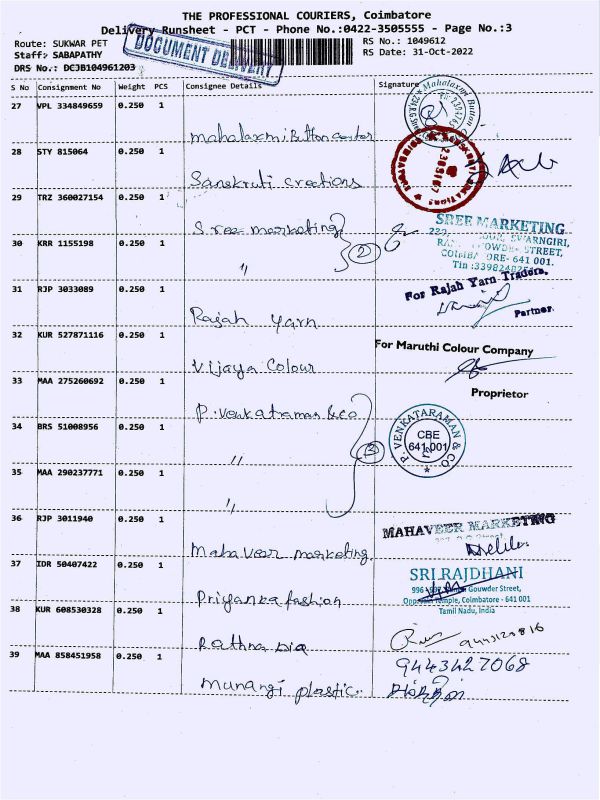 THE PROFESSIONAL COURIERS, Coimbatore
Delivery Runsheet - PCT - Phone No.:0422-3505555 - Page No.:3
Route: SUKWAR PET
RS No.: 1049612
Staff: SABAPATHY
RS Date: 31-Oct-2022
DRS No.: DCJB104961203
DOCUMENT DELIVERY
S No Consignment No Weight PCS Consignee Details Signature
27 VPL 334849659 0.250 1
Mahalaxmi Button center
28 STY 815064 0.250 1
Sanskruti creations
29 TRZ 360027154 0.250 1
Sree marketing
2
30 KRR 1155198 0.250 1
"
SREE MARKETING
STREET,
COIMBATORE- 641 001.
31 RJP 3033089 0.250 1
Rajah yarn
For Rajah Yarn Traders,
Partner.
32 KUR 527871116 0.250 1
Vijaya Colour
For Maruthi Colour Company
Proprietor
33 MAA 275260692 0.250 1
P. Venkataraman & co
34 BRS 51008956 0.250 1
"
P. VENKATARAMAN & CO
CBE
641 001
35 MAA 290237771 0.250 1
"
36 RJP 3011940 0.250 1
Mahaveer marketing
MAHAVEER MARKETING
37 IDR 50407422 0.250 1
Priyanka fashion
SRI RAJDHANI
Gouwder Street,
Temple, Coimbatore - 641 001
Tamil Nadu, India
38 KUR 608530328 0.250 1
Rathna
39 MAA 858451958 0.250 1
plastic.
9443427068